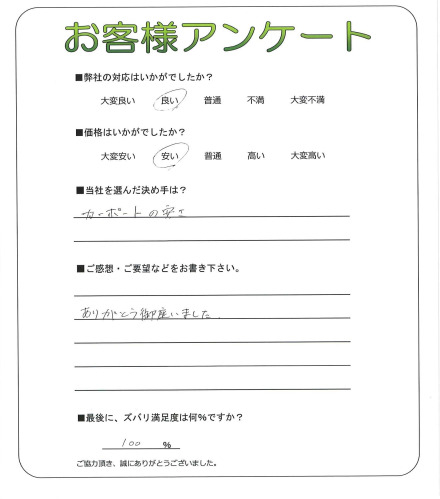 お客様アンケート
■弊社の対応はいかがでしたか？
大変良い 良い 普通 不満 大変不満
■価格はいかがでしたか？
大変安い 安い 普通 高い 大変高い
■当社を選んだ決め手は？
カーポートの安さ
■ご感想・ご要望などをお書き下さい。
ありがとう御座いました.
■最後に、ズバリ満足度は何%ですか？
100 %
ご協力頂き、誠にありがとうございました。